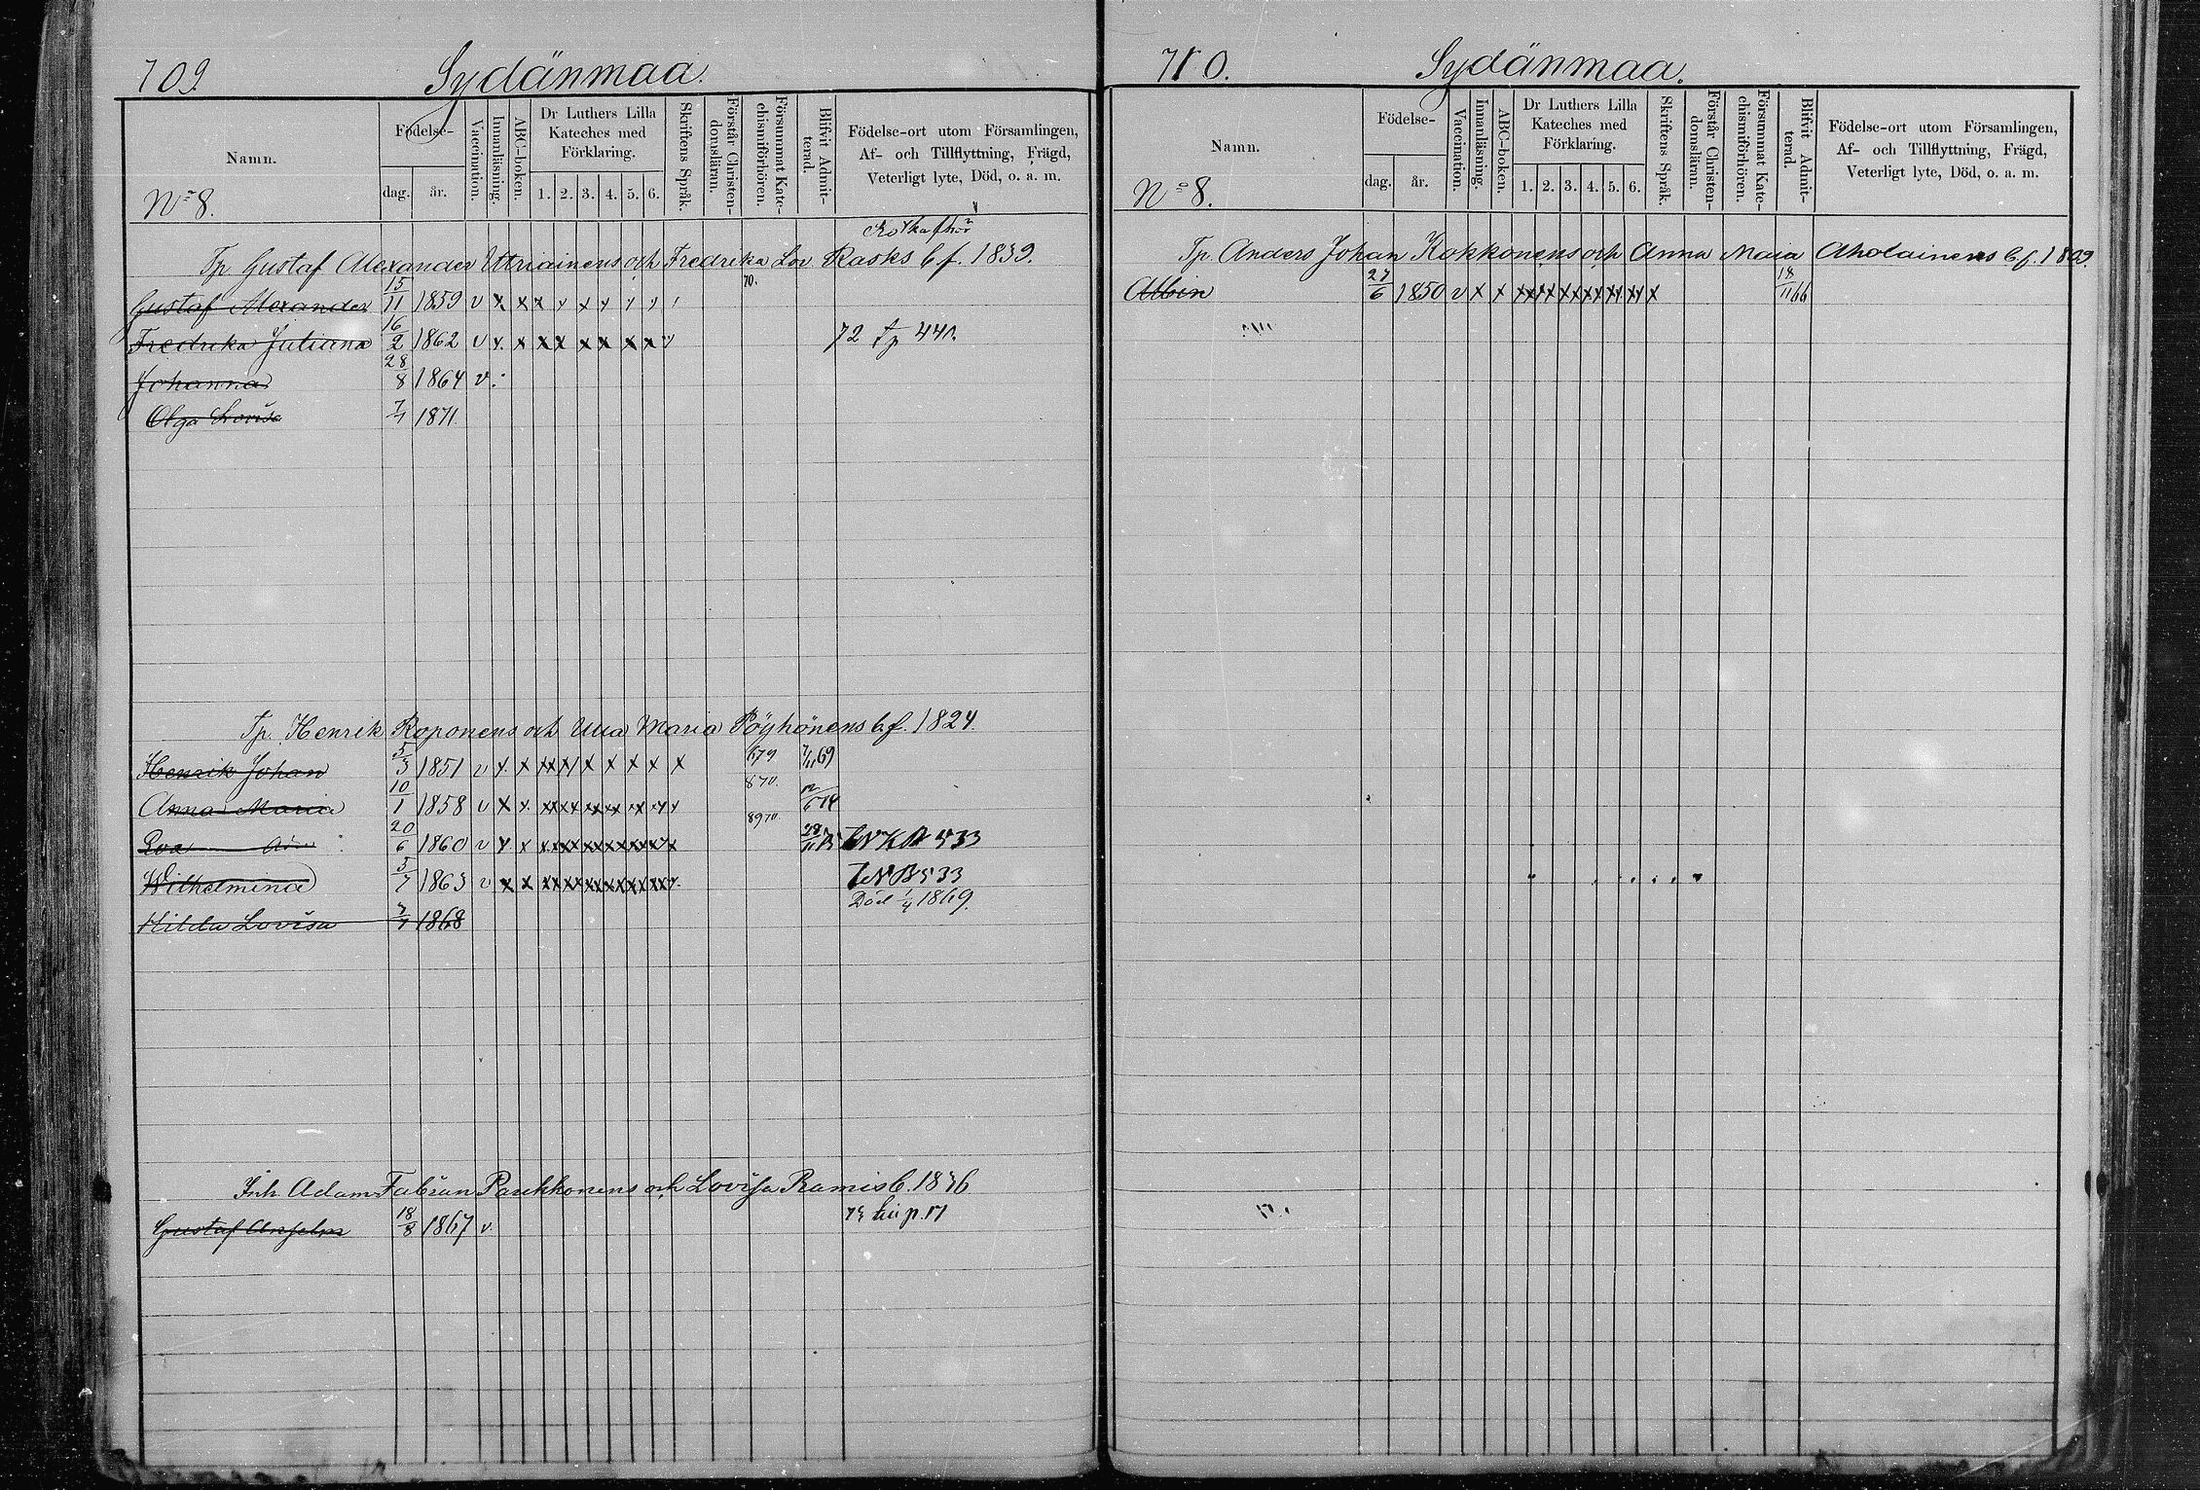 709. Sydänmaa.
Namn.
Födelse-
dag. år.
Vaccination.
Innanläsning.
ABC-boken.
Dr Luthers Lilla Kateches med Förklaring.
1. 2. 3. 4. 5. 6.
Skriftens Språk.
Förstår Christendomsläran.
Försummat Katechismiförhören.
Blifvit Admitterad.
Födelse-ort utom Församlingen,
Af- och Tillflyttning, Frägd,
Veterligt lyte, Död, o. a. m.
No 8.
Tp. Gustaf Alexander Uttriainens och Fredrika Lov. Rasks b. f. 1839.
Gustaf Alexander 15/11 1859 v x x x x x x x x 70.
Fredrika Juliana 16/2 1862 v x x x x x x x x 72 tp 441.
Johanna 28/8 1864 v
Olga Lovisa 7/1 1871.
Tp. Henrik Roponens och Ulla Maria Pöyhönens b. f. 1824.
Henrik Johan 5/3 1851 v x x x x x x x x x 679 7/11 69
Anna Maria 10/1 1858 v x x x x x x x x x 870.
20/6 1860 v x x x x x x x x x 8970. 533
Wilhelmina 5/7 1863 v x x x x x x x x x 533
Död 1/4 1869.
Hilda Lovisa 7/7 1868
Inh. Adam Fabian Parkkonens och Lovisa Ramis b. 1836
Gustaf Anselm 18/8 1867 v.
710. Sydänmaa.
Namn.
Födelse-
dag. år.
Vaccination.
Innanläsning.
ABC-boken.
Dr Luthers Lilla Kateches med Förklaring.
1. 2. 3. 4. 5. 6.
Skriftens Språk.
Förstår Christendomsläran.
Försummat Katechismiförhören.
Blifvit Admitterad.
Födelse-ort utom Församlingen,
Af- och Tillflyttning, Frägd,
Veterligt lyte, Död, o. a. m.
No 8.
Tp. Anders Johan Kokkonens och Anna Maria Aholainens b. f. 1809.
Albin 27/6 1850 v x x x x x x x x x 18/11 66